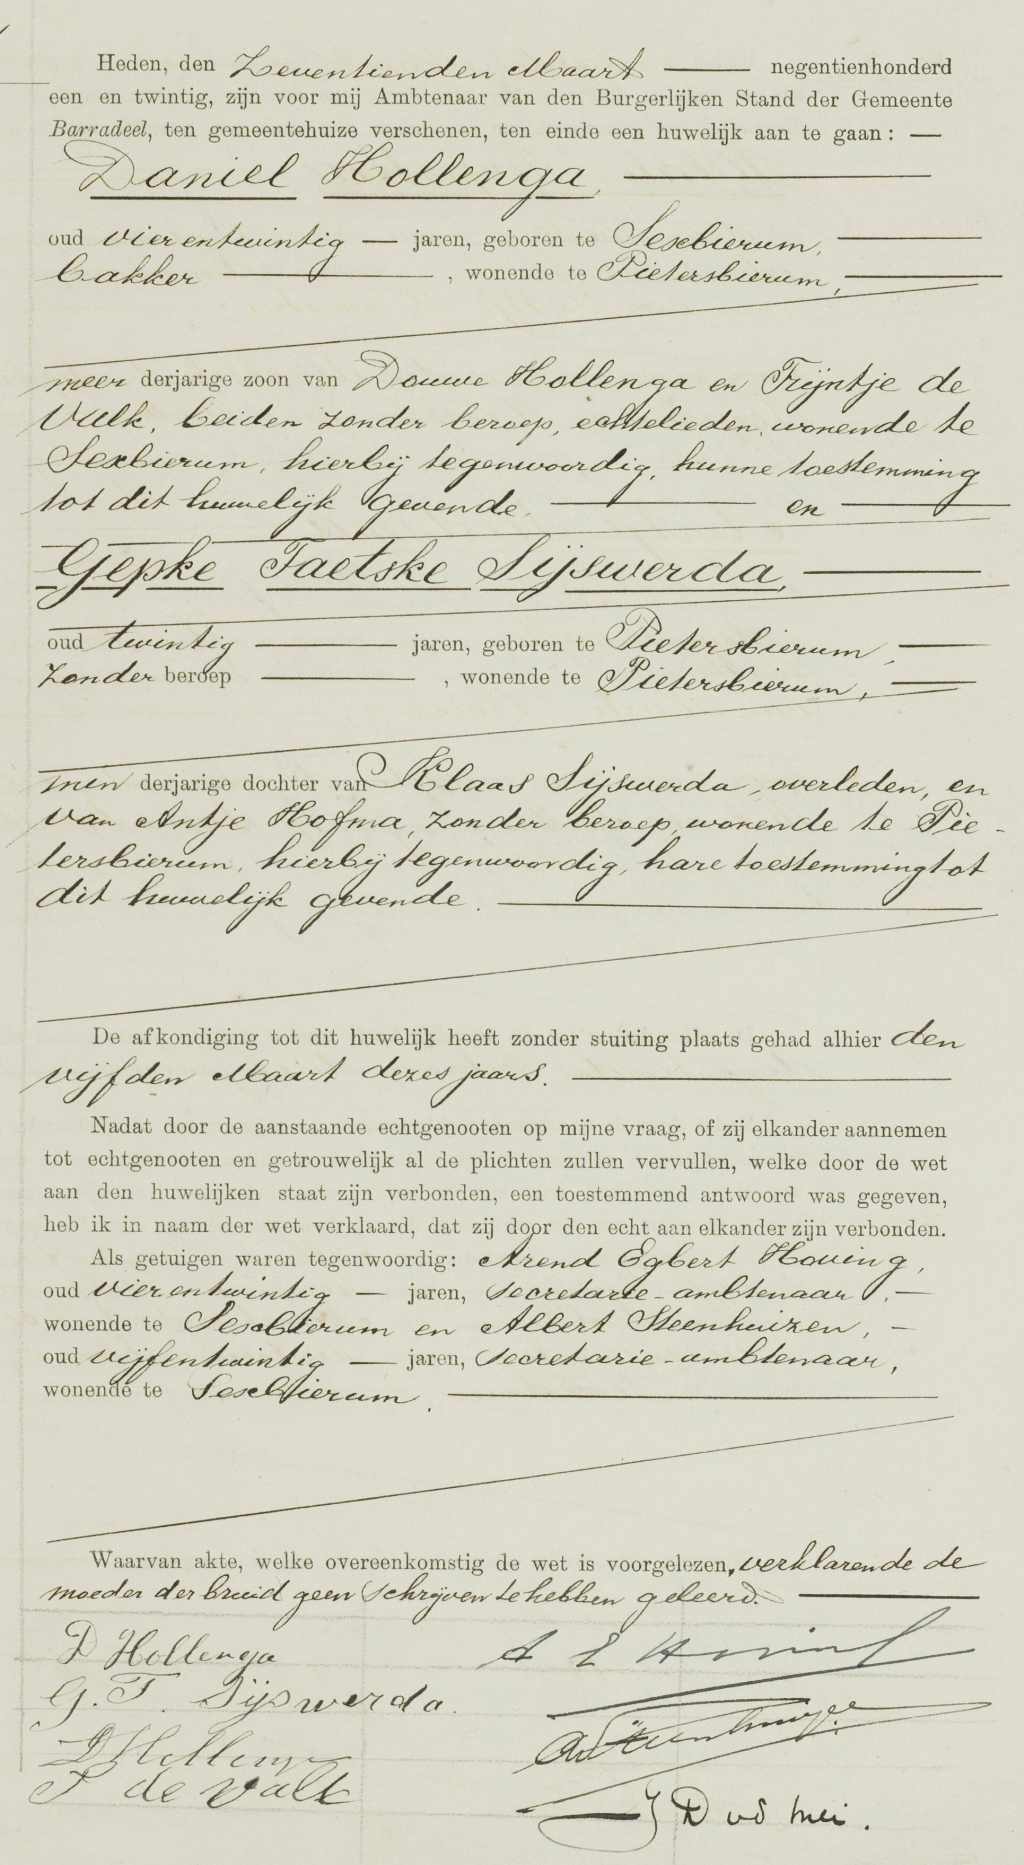 Heden, den Zeventienden Maart negentienhonderd
een en twintig, zijn voor mij Ambtenaar van den Burgerlijken Stand der Gemeente
Barradeel, ten gemeentehuize verschenen, ten einde een huwelijk aan te gaan: —
Daniel Hollenga,
oud vierentwintig — jaren, geboren te Sexbierum,
bakker, wonende te Pietersbierum,
meerderjarige zoon van Douwe Hollenga en Trijntje de
Valk, beiden zonder beroep, echtelieden, wonende te
Sexbierum, hierbij tegenwoordig, hunne toestemming
tot dit huwelijk gevende. en
Gepke Taetske Sijswerda,
oud twintig jaren, geboren te Pietersbierum,
zonder beroep, wonende te Pietersbierum,
minderjarige dochter van Klaas Sijswerda, overleden, en
van Antje Hofma, zonder beroep, wonende te Pie-
tersbierum, hierbij tegenwoordig, hare toestemming tot
dit huwelijk gevende.
De afkondiging tot dit huwelijk heeft zonder stuiting plaats gehad alhier den
vijfden Maart dezes jaars.
Nadat door de aanstaande echtgenooten op mijne vraag, of zij elkander aannemen
tot echtgenooten en getrouwelijk al de plichten zullen vervullen, welke door de wet
aan den huwelijken staat zijn verbonden, een toestemmend antwoord was gegeven,
heb ik in naam der wet verklaard, dat zij door den echt aan elkander zijn verbonden.
Als getuigen waren tegenwoordig: Arend Egbert Hoving,
oud vierentwintig — jaren, secretarie-ambtenaar, —
wonende te Sexbierum en Albert Steenhuizen, —
oud vijfentwintig — jaren, secretarie-ambtenaar,
wonende te Sexbierum.
Waarvan akte, welke overeenkomstig de wet is voorgelezen, verklarende de
moeder der bruid geen schrijven te hebben geleerd.
D Hollenga A E Hoving
G. T. Sijswerda.
D Hollenga
T de Valk